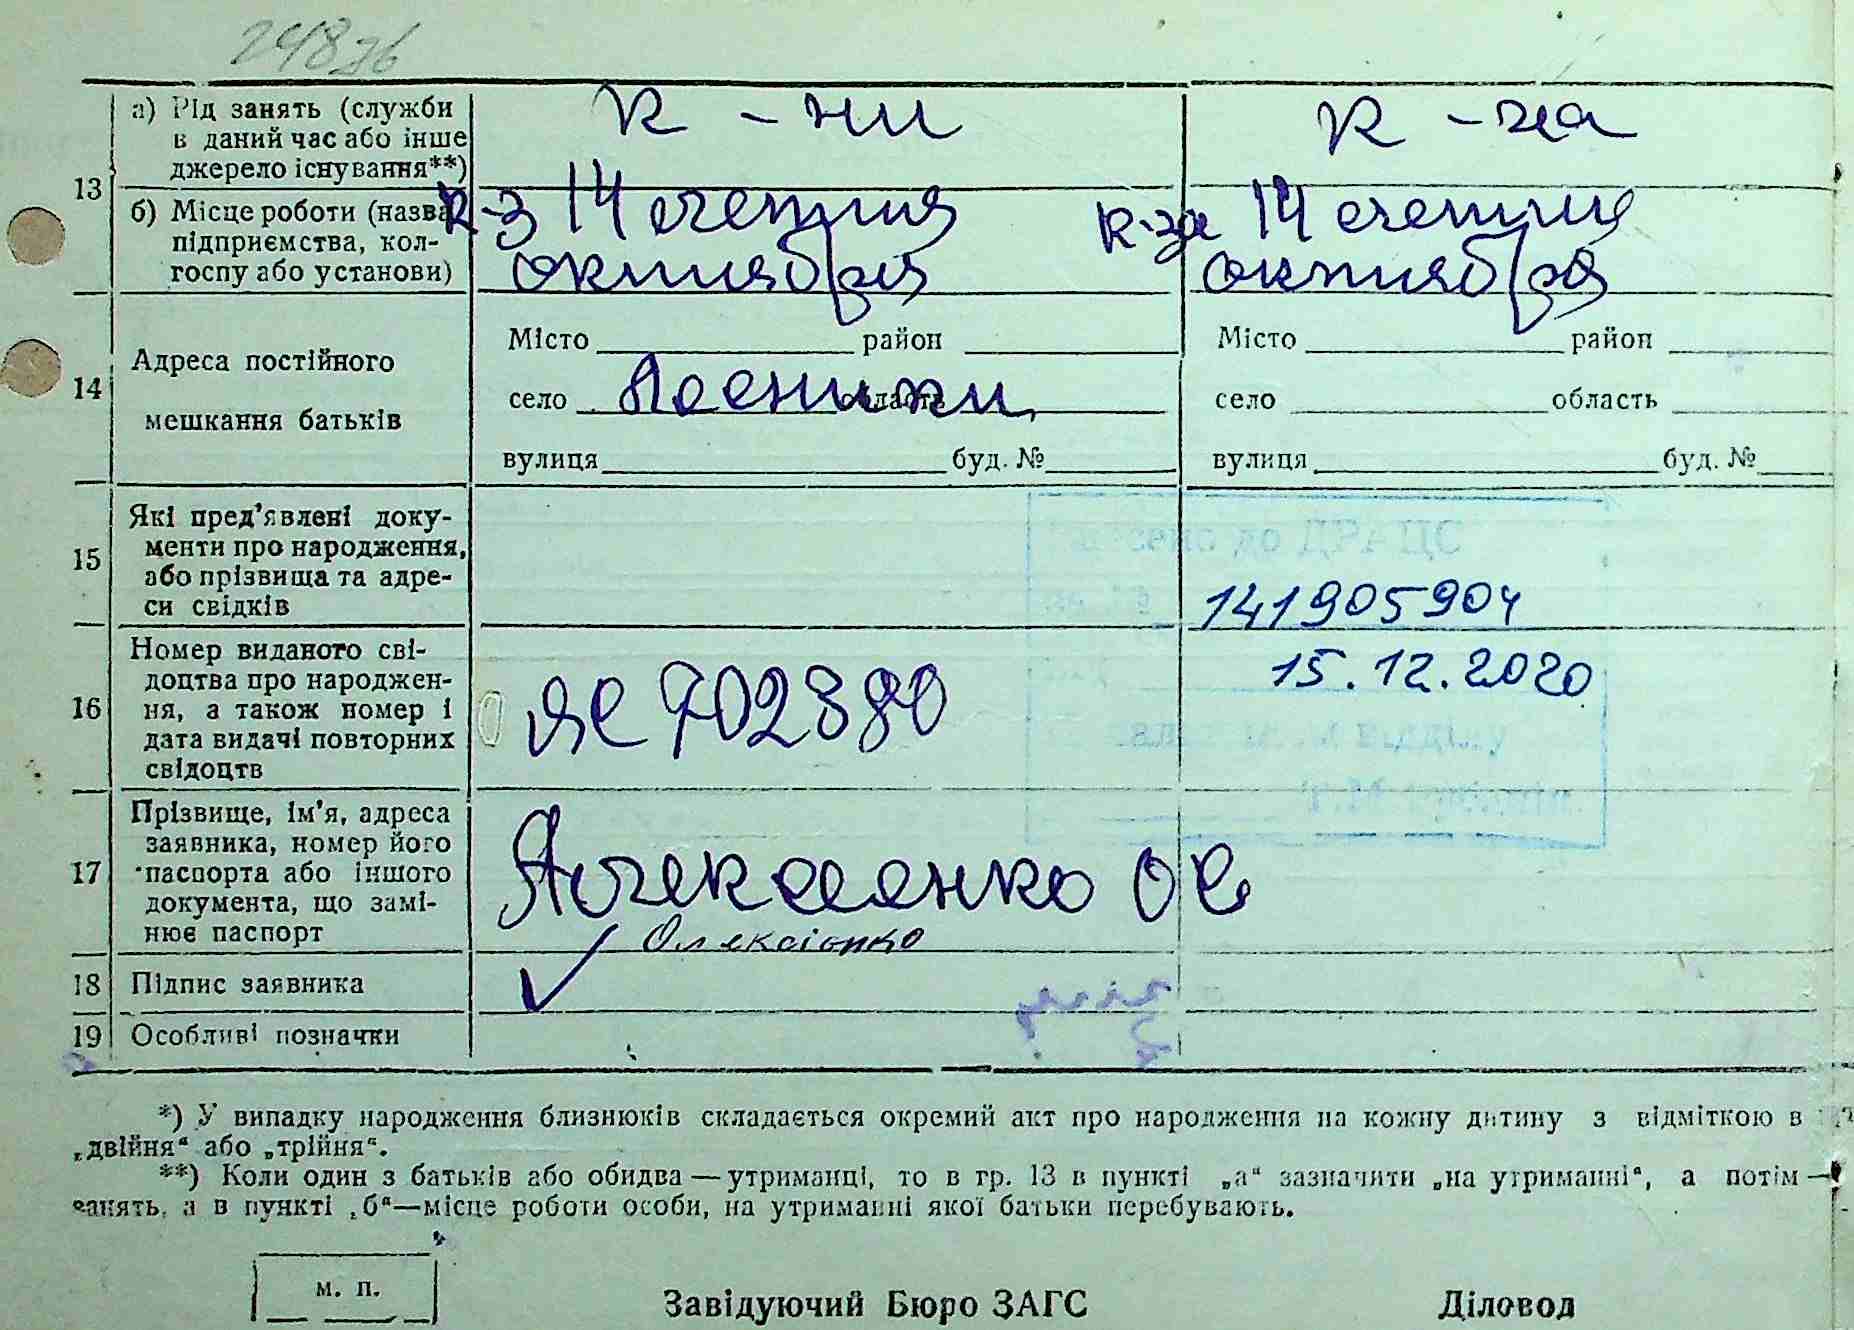 24836
13
а) Рід занять (служби
в даний час або інше
джерело існування**)
к-ни
к-ца
б) Місце роботи (назва
підприємства, кол-
госпу або установи)
к-з 14 
октября
к-за 14 
октября
14
Адреса постійного
мешкання батьків
Місто район
село область
вулиця буд. №
Місто район
село область
вулиця буд. №
15
Які пред'явлені доку-
менти про народження,
або прізвища та адре-
си свідків
до ДРАЦС
141905904
16
Номер виданого сві-
доцтва про народжен-
ня, а також номер і
дата видачі повторних
свідоцтв
ЯС 702880
15.12.2020
відділу
17
Прізвище, ім'я, адреса
заявника, номер його
паспорта або іншого
документа, що замі-
нює паспорт
Олексієнко
18
Підпис заявника
19
Особливі позначки
*) У випадку народження близнюків складається окремий акт про народження на кожну дитину з відміткою в
„двійня“ або „трійня“.
**) Коли один з батьків або обидва — утриманці, то в гр. 13 в пункті „а“ зазначити „на утриманні“, а потім —
занять, а в пункті „б“—місце роботи особи, на утриманні якої батьки перебувають.
м. п.
Завідуючий Бюро ЗАГС
Діловод